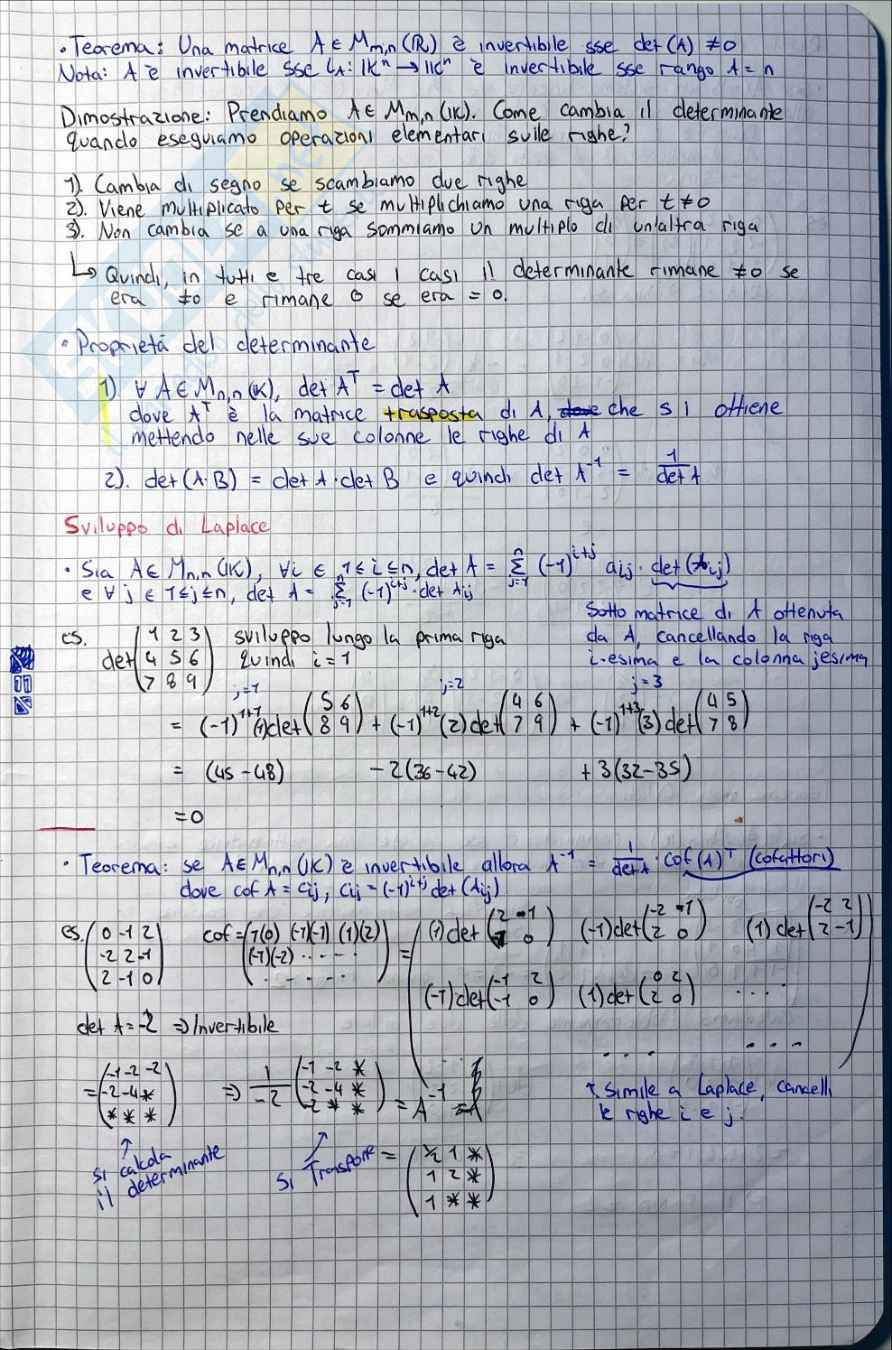 • Teorema: Una matrice A ∈ Mm,n (R) è invertibile sse det(A) ≠0
Nota: A è invertibile sse LA: IKⁿ → IKⁿ è invertibile sse rango A = n
Dimostrazione: Prendiamo A ∈ Mm,n (IK). Come cambia il determinante
quando eseguiamo operazioni elementari sulle righe?
1). Cambia di segno se scambiamo due righe
2). Viene multiplicato per t se multiplichiamo una riga per t ≠0
3). Non cambia se a una riga sommiamo un multiplo di un'altra riga
↳ Quindi, in tutti e tre casi i casi il determinante rimane ≠0 se
era ≠0 e rimane 0 se era = 0.
• Proprietà del determinante
1) ∀ A ∈ Mn,n (K), det Aᵀ = det A
dove Aᵀ è la matrice trasposta di A, che si ottiene
mettendo nelle sue colonne le righe di A
2). det (A·B) = det A · det B e quindi det A⁻¹ = 1/det A
Sviluppo di Laplace
• Sia A ∈ Mn,n (IK), ∀i ∈ 1≤i≤n, det A = Σ_{j=1}^{n} (-1)^{i+j} aij · det(Aij)
e ∀j ∈ 1≤j≤n, det A = Σ_{j=1}^{n} (-1)^{i+j} · det Aij
Sotto matrice di A ottenuta
da A, cancellando la riga
i-esima e la colonna jesima
es. det (1 2 3
4 5 6
7 8 9)
sviluppo lungo la prima riga
quindi i = 1
j=1 j=2 j=3
= (-1)^{1+1} (1) det (5 6 / 8 9) + (-1)^{1+2} (2) det (4 6 / 7 9) + (-1)^{1+3} (3) det (4 5 / 7 8)
= (45-48) -2(36-42) +3(32-35)
= 0
• Teorema: se A ∈ Mn,n (IK) è invertibile allora A⁻¹ = 1/det A · Cof (A)ᵀ (cofattori)
dove cof A = cij, cij = (-1)^{i+j} det (Aij)
es. (0 -1 2
-2 2 -1
2 -1 0)
cof = (1(0) (-1)(-1) (1)(2)
(-1)(-2) .....
.....) =
((1) det (2 -1 / -1 0) (-1) det (-2 -1 / 2 0) (1) det (-2 2 / 2 -1)
(-1) det (-1 2 / -1 0) (1) det (0 2 / 2 0) ....
... ...)
det A = -2 ⇒ Invertibile
= (-1 -2 -2
-2 -4 *
* * *)
⇒ 1/-2 (-1 -2 *
-2 -4 *
-2 * *) = A⁻¹
↑ Simile a Laplace, cancelli
le righe i e j.
↑
si calcola
il determinante
↗
si Traspone
= (½ 1 *
1 2 *
1 * *)